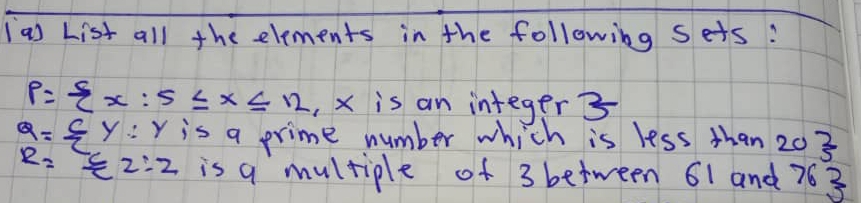 1a) List all the elements in the following sets :
P= { x : 5 ≤ x ≤ 12, x is an integer }
Q= { Y : Y is a prime number which is less than 20 }
R= { z : z is a multiple of 3 between 61 and 76 }